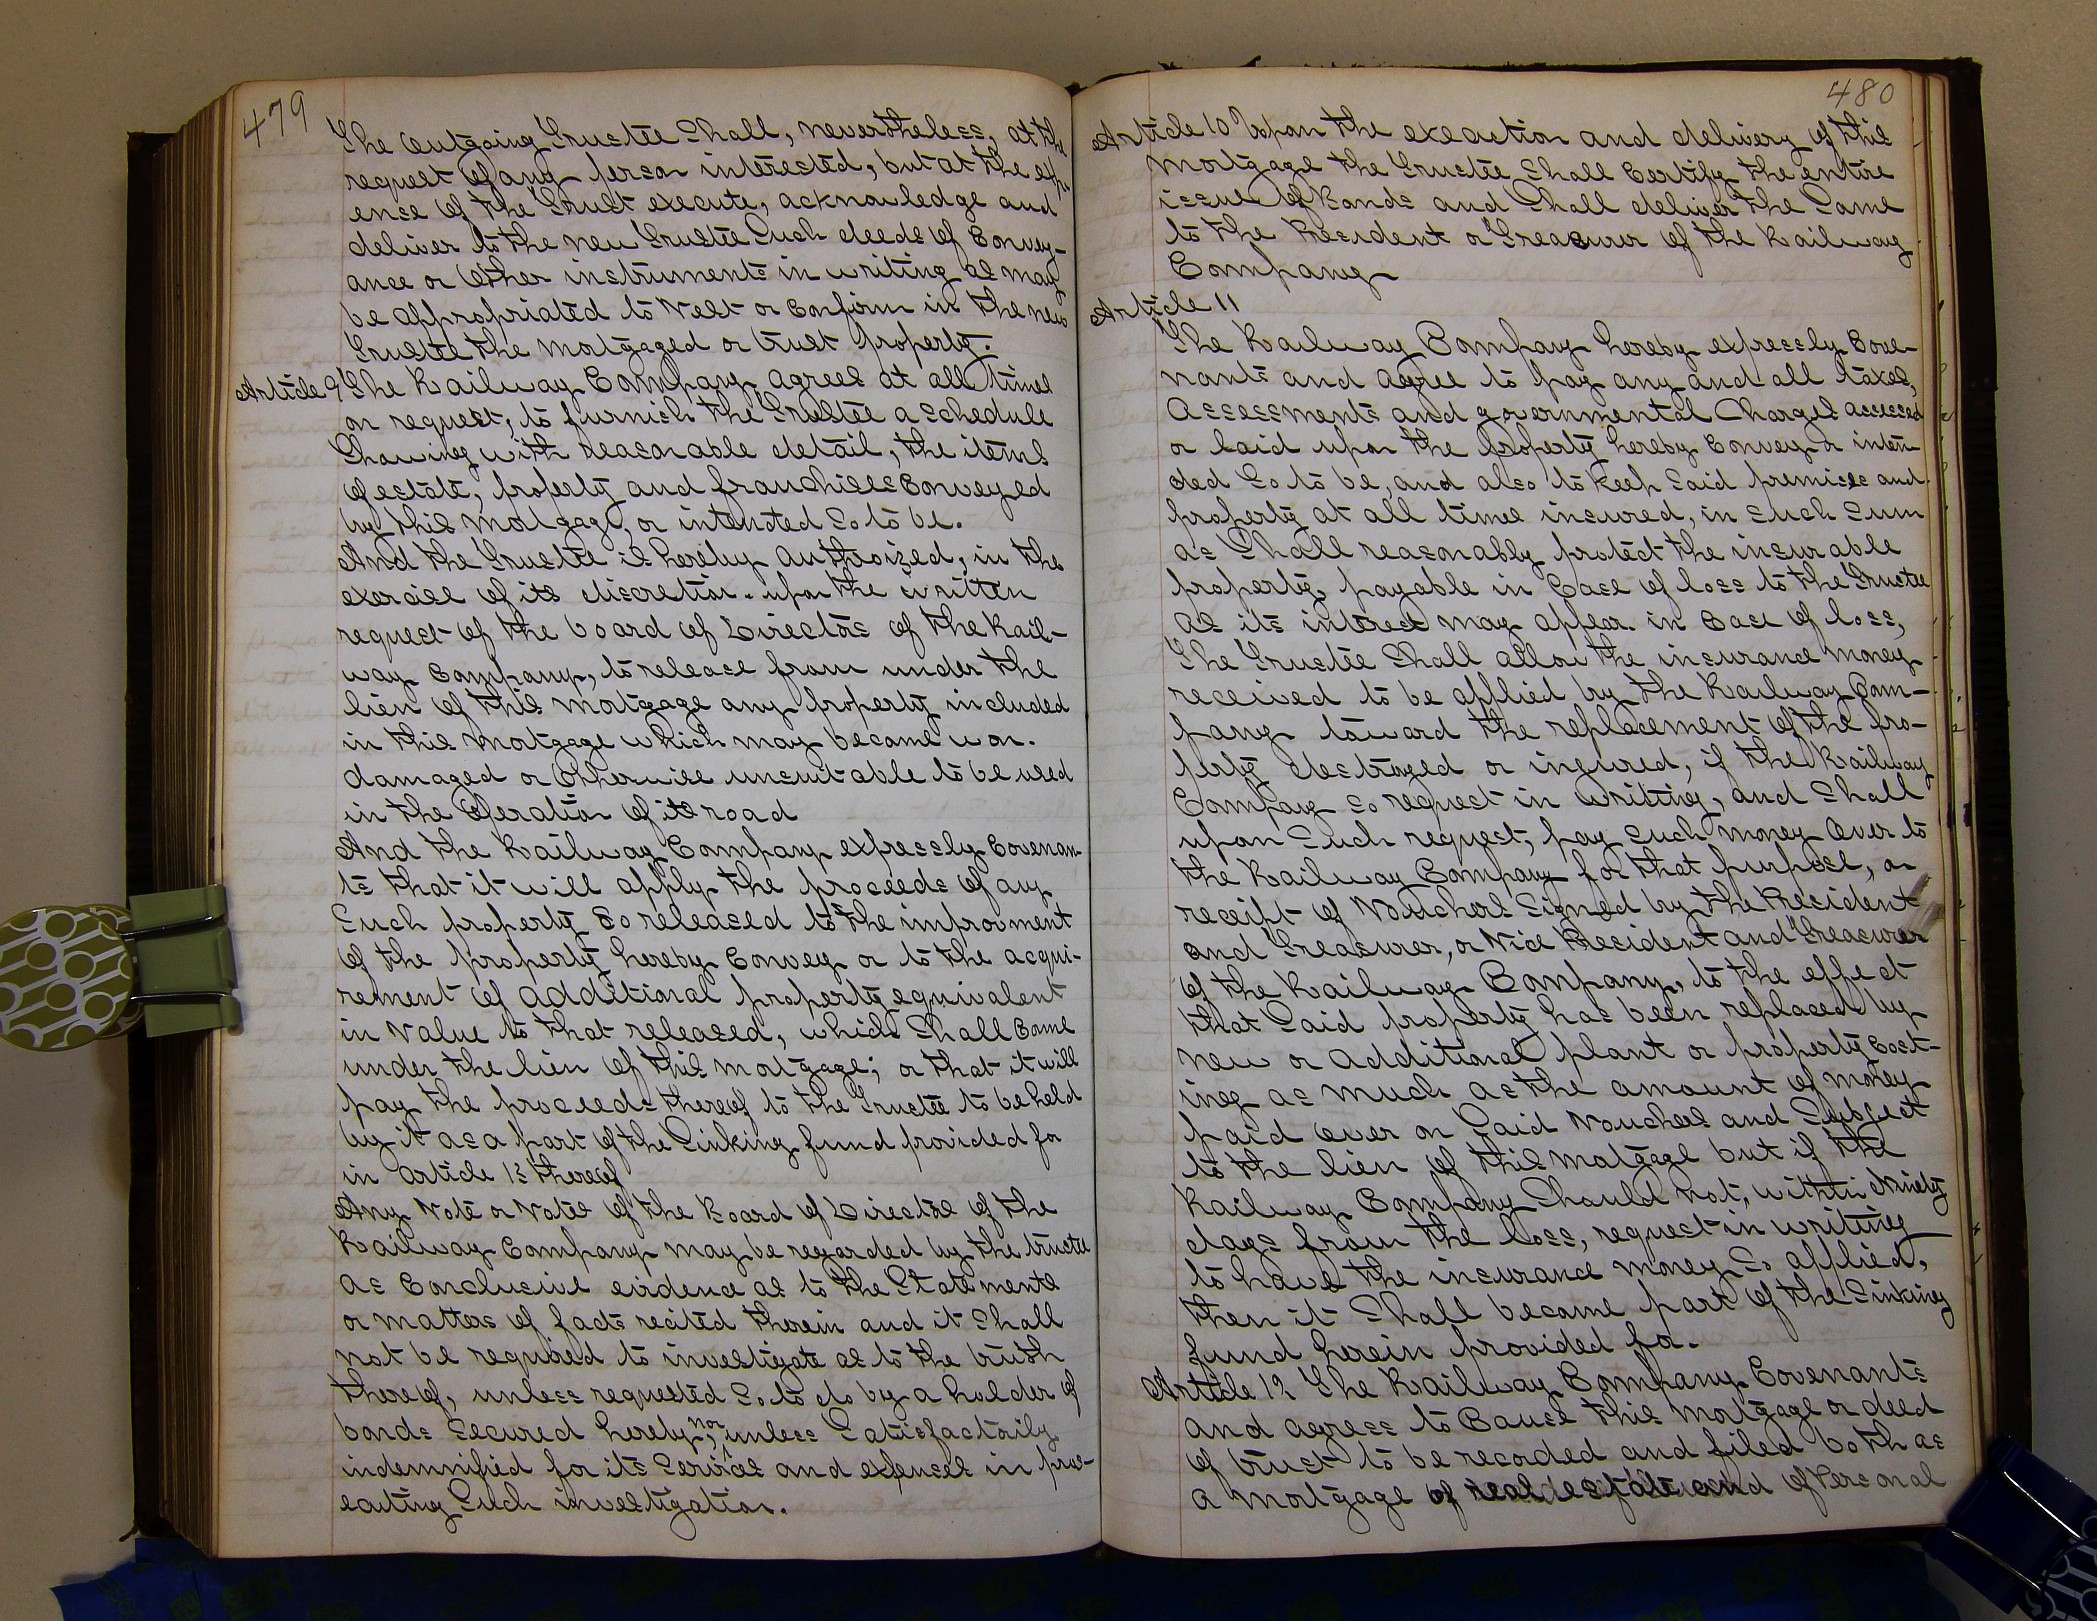 479
The outgoing Trustee shall, nevertheless, at the
request of any person interested, but at the exp-
ense of the Trust execute, acknowledge and
deliver to the new Trustee such deeds of Convey-
ance or other instruments in writing as may
be appropriated to Vest or Confirm in the new
Trustee the mortgaged or trust property.
Article 9 The Railway Company agrees at all times
on request, to furnish the Trustee a schedule
Showing with reasonable detail, the items
of estate, property and franchises Conveyed
by this mortgage, or intended so to be.
And the Trustee is hereby authorized, in the
exercise of its discretion. upon the written
request of the board of Directors of the Rail-
way Company, to release from under the
lien of this mortgage any property included
in this mortgage which may become worn.
damaged or otherwise unsuitable to be used
in the Operation of its road
And the Railway Company expressly Covenan-
ts that it will apply the proceeds of any
such property so released to the improvment
of the property hereby Convey or to the acqui-
rement of additional property equivalent
in value to that released, which shall Come
under the lien of this mortgage; or that it will
pay the proceeds thereof to the Trustee to be held
by it as a part of the Sinking fund provided for
in article 13 thereof
Any Vote or Votes of the Board of Directors of the
Railway Company may be regarded by the trustee
as Conclusive evidence as to the Statements
or matters of facts recited therein and it shall
not be required to investigate as to the truth
thereof, unless requested so to do by a holder of
bonds secured hereby, nor unless Satisfactorily
indemnified for its Services and expenses in pros-
ecuting such investigation.
480
Article 10 Upon the execution and delivery of this
mortgage the Trustee shall Certify the entire
issue of Bonds and shall deliver the same
to the President or Treasurer of the Railway
Company
Article 11
The Railway Company hereby expressly Cove-
nants and agree to pay any and all taxes,
assessments and governmental Charges assessed
or laid upon the property hereby Convey or inten-
ded so to be, and also to keep said premises and
property at all times insured, in such sum
as shall reasonably protect the insurable
property, payable in Case of loss to the Trustee
as its interest may appear. in Case of loss,
The Trustee shall allow the insurance money
received to be applied by the Railway Com-
pany toward the replacement of the pro-
perty destroyed or injured, if the Railway
Company so request in writing, and shall
upon such request, pay such money over to
the Railway Company for that purpose, on
receipt of Vouchers signed by the President
and Treasurer, or Vice President and Treasurer
of the Railway Company, to the effect
that said property has been replaced by
new or additional plant or property Cost-
ing as much as the amount of money
paid over on said Vouchers and Subject
to the lien of this mortgage but if the
Railway Company should not, within Ninety
days from the loss, request in writing
to have the insurance money so applied,
then it shall become part of the sinking
fund herein provided for.
Article 12 The Railway Company Covenants
and agrees to Cause this mortgage or deed
of trust to be recorded and filed both as
a mortgage of real estate and of Personal